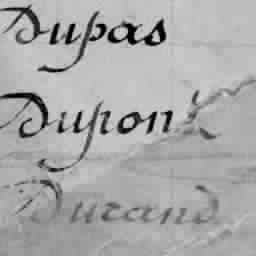 Dupas
Dupont
Durand